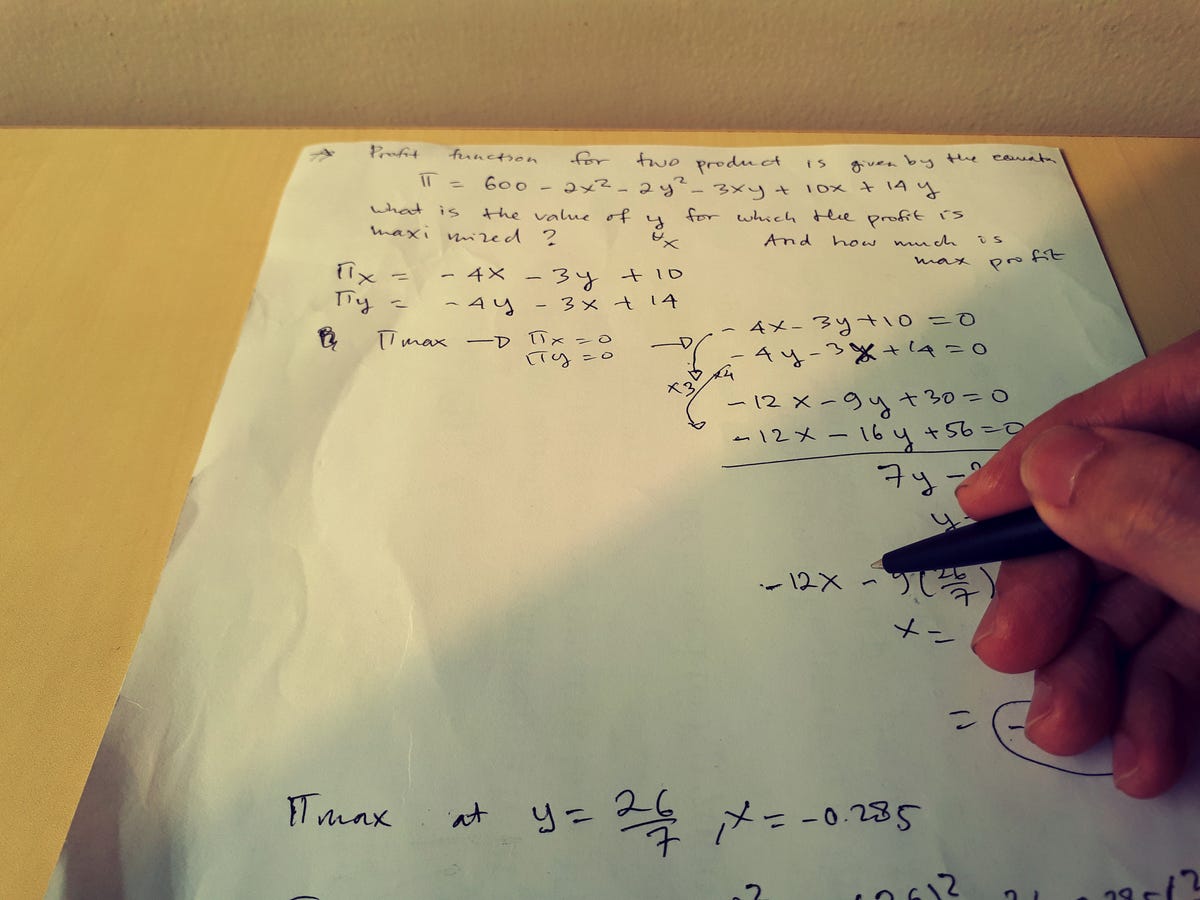 Profit function for two product is given by the
Π = 600 - 2x² - 2y² - 3xy + 10x + 14y
what is the value of y for which the profit is
maximized ? & x And how much is
max profit
Πx = - 4x - 3y + 10
Πy = - 4y - 3x + 14
Πmax → Πx = 0 → - 4x - 3y + 10 = 0
Πy = 0 - 4y - 3x + 14 = 0
x3 x4
- 12x - 9y + 30 = 0
- 12x - 16y + 56 = 0
7y -
y
- 12x - 9(26/7)
x =
= -
Πmax at y = 26/7 , x = -0.285